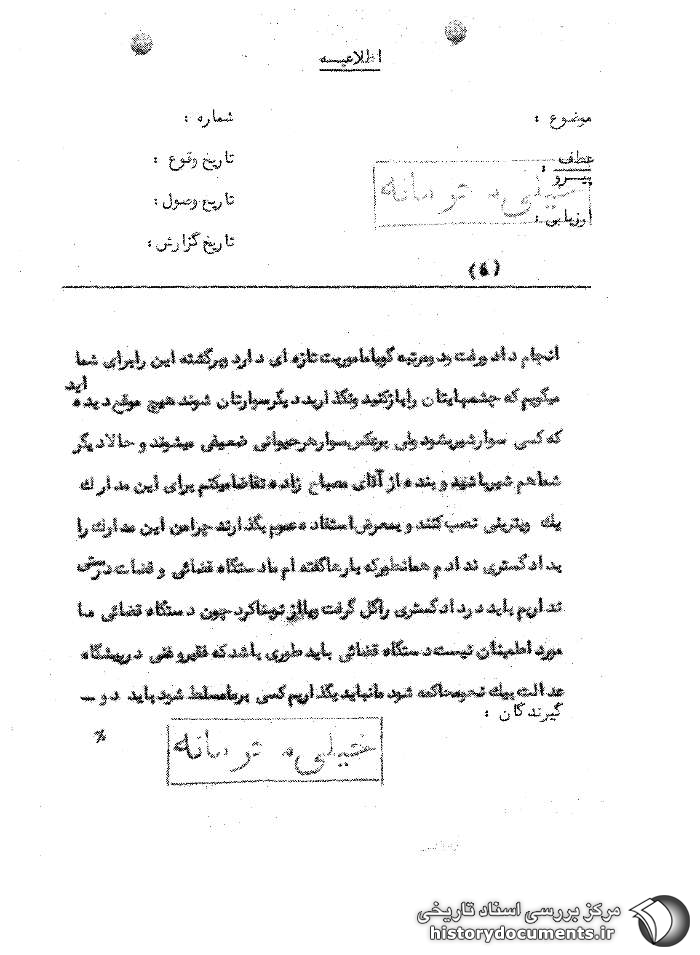 اطلاعیــه
موضوع :
شماره :
عطف
پیــرو :
تاریخ وقوع :
خیلی محرمانه
تاریخ وصول :
ارزیابی :
تاریخ گزارش :
انجام داد ورفت ودومرتبه گویاماموریت تازه ای دارد وبرگشته این رابرای شما
میگویم که چشمهایتان رابازکنید ونگذارید دیگرسوارتان شوند هیچ موقع دیده اید
که کسی سوارشیربشود ولی برعکس سوارهرحیوانی ضعیفی میشوند و حالا دیگر
شماهم شیرباشید و بنده از آقای مصباح زاده تقاضامیکنم برای این مدارك
یك ویترینی نصب کنند و بمعرض استفاده عموم بگذارند چرامن این مدارك را
بدادگستری ندادم همانطورکه بارهاگفته ام مادستگاه قضائی و قضات درستی
نداریم باید دردادگستری راگل گرفت چون دستگاه قضائی ما
مورد اطمینان نیست دستگاه قضائی باید طوری باشدکه فقیروغنی درپیشگاه
عدالت بیك نحومحاکمه شود مانباید بگذاریم کسی برمامسلط شود باید دو ــ
گیرندگان :
خیلی محرمانه
مرکز بررسی اسناد تاریخی
historydocuments.ir